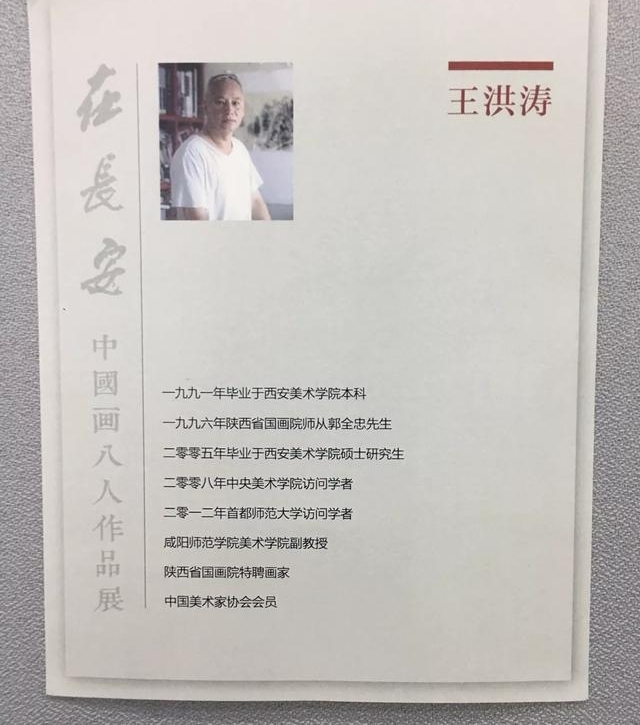 王洪涛
在長安
中國画八人作品展
一九九一年毕业于西安美术学院本科
一九九六年陕西省国画院师从郭全忠先生
二零零五年毕业于西安美术学院硕士研究生
二零零八年中央美术学院访问学者
二零一二年首都师范大学访问学者
咸阳师范学院美术学院副教授
陕西省国画院特聘画家
中国美术家协会会员